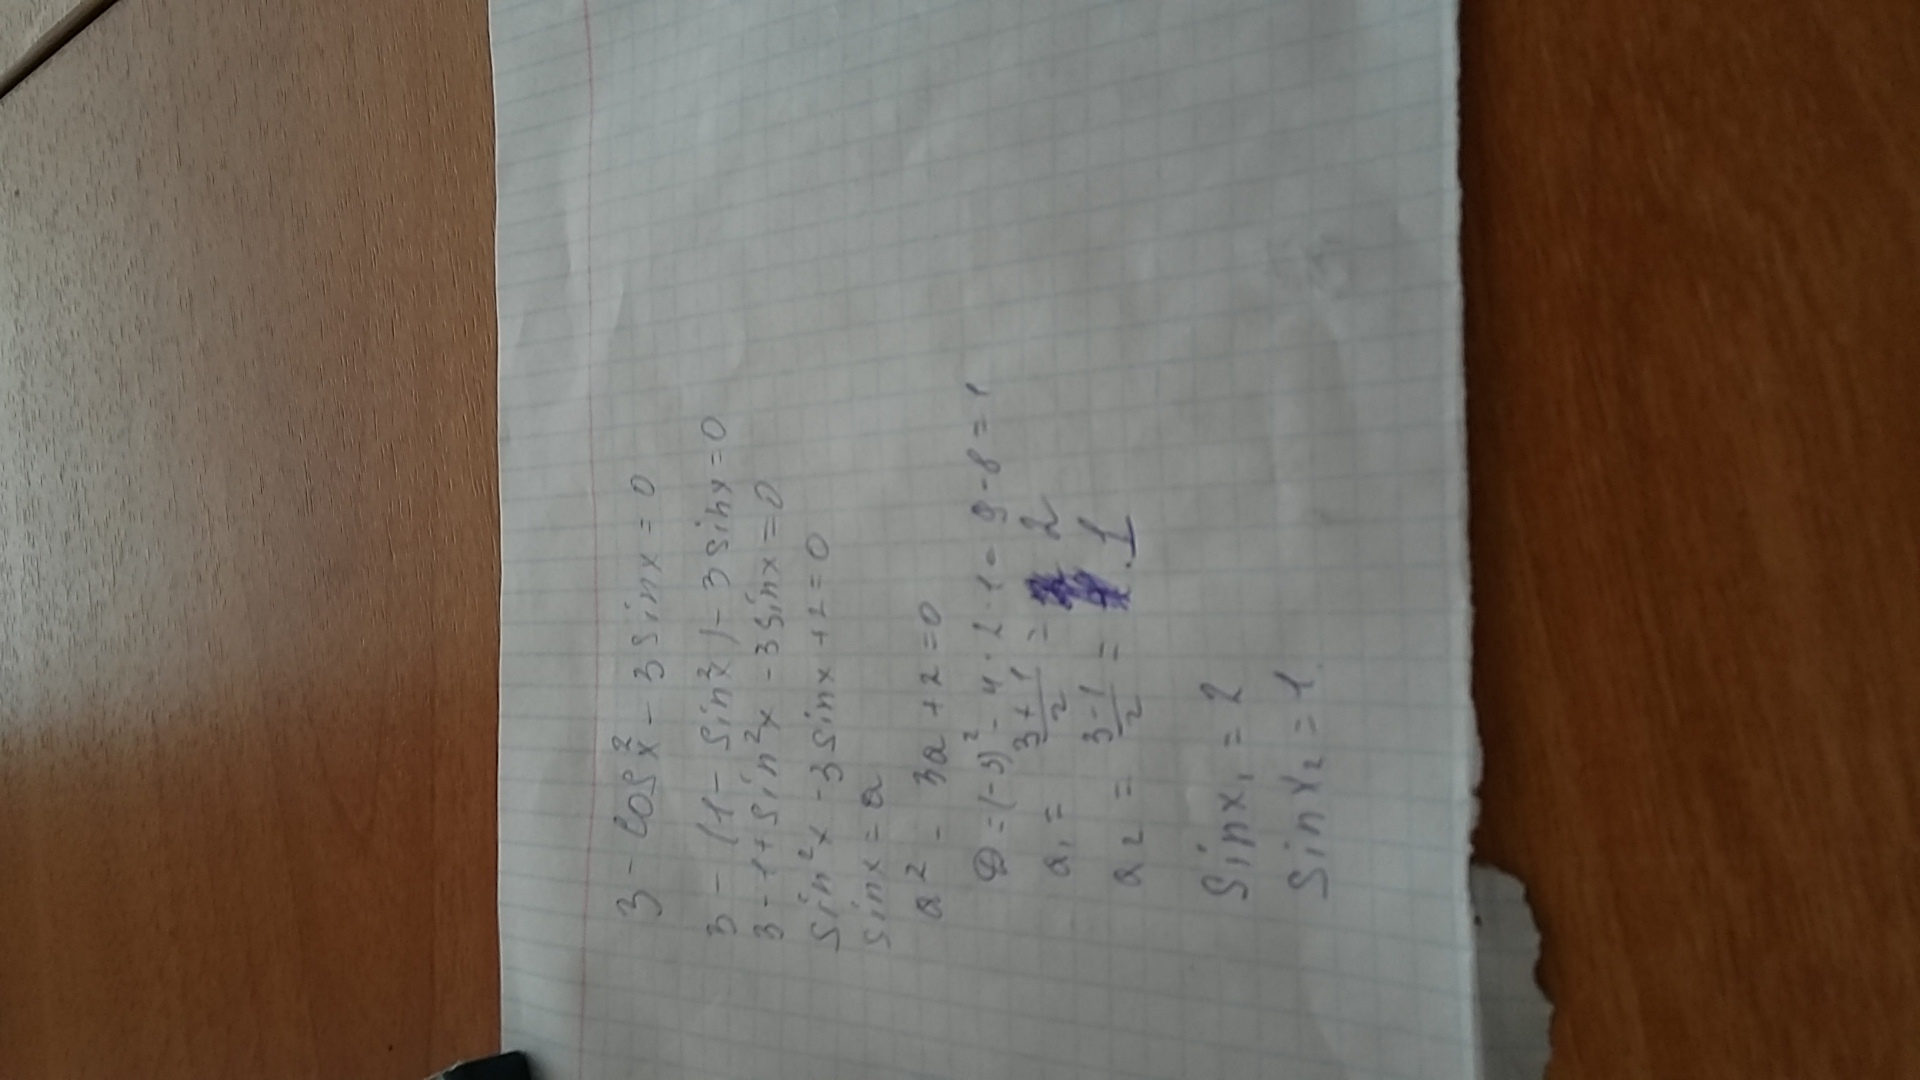 3 - cos²x - 3 sin x = 0
3 - (1 - sin²x) - 3 sin x = 0
3 - 1 + sin²x - 3 sin x = 0
sin²x - 3 sin x + 2 = 0
sin x = a
a² - 3a + 2 = 0
D = (-3)² - 4 · 2 · 1 = 9 - 8 = 1
a₁ = (3+1)/2 = 2
a₂ = (3-1)/2 = 1
sin x₁ = 2
sin x₂ = 1